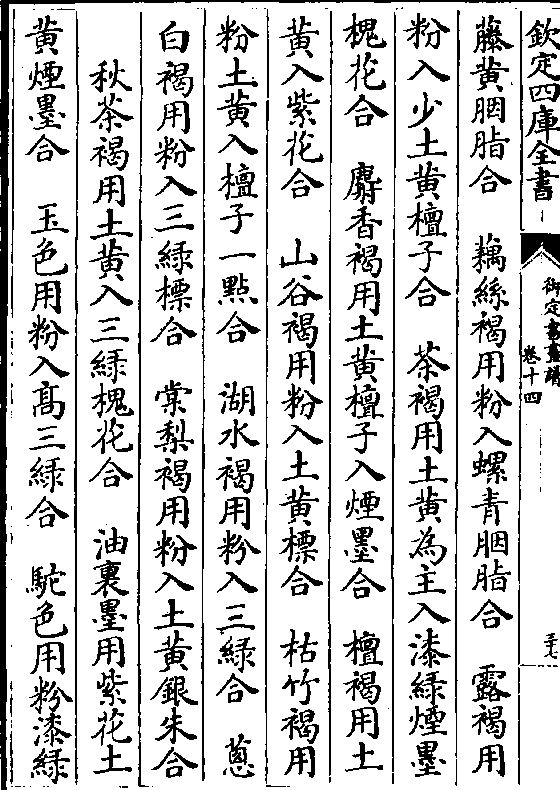 欽定四庫全書
御定書畫譜
卷十四
三十七
藤黄胭脂合　藕絲褐用粉入螺青胭脂合　露褐用
粉入少土黄檀子合　茶褐用土黄為主入漆綠煙墨
槐花合　麝香褐用土黄檀子入煙墨合　檀褐用土
黄入紫花合　山谷褐用粉入土黄標合　枯竹褐用
粉土黄入檀子一點合　湖水褐用粉入三綠合　蔥
白褐用粉入三綠標合　棠梨褐用粉入土黄銀朱合
秋茶褐用土黄入三綠槐花合　油裏墨用紫花土
黄煙墨合　玉色用粉入高三綠合　駝色用粉漆綠